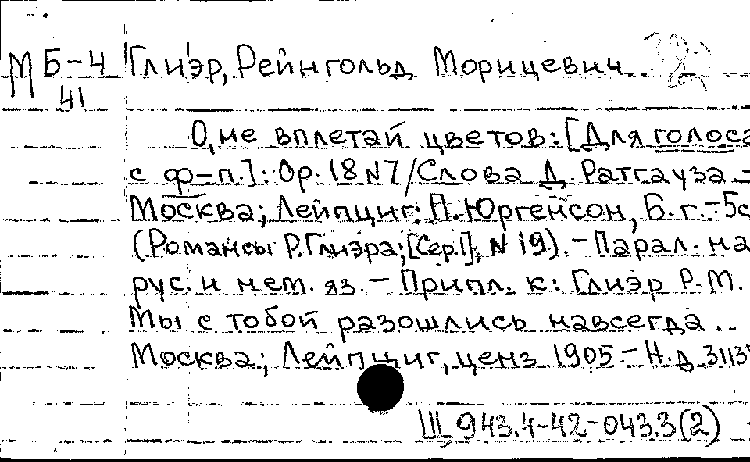 М Б-4 Глиэр, Рейнгольд Морицевич.
41
О, не вплетай цветов: [Для голоса
с ф-п.]: Ор. 18 N7 / Слова Д. Ратгауза. -
Москва; Лейпциг: П. Юргенсон, Б.г. - 5с
(Романсы Р. Глиэра; [Сер.1], N 19). - Парал. на
рус. и нем. яз. - Припл. к: Глиэр Р.М.
Мы с тобой разошлись навсегда..
Москва; Лейпциг, ценз 1905 - Н.д. 3113
Щ 943.4-42-043.3(2)